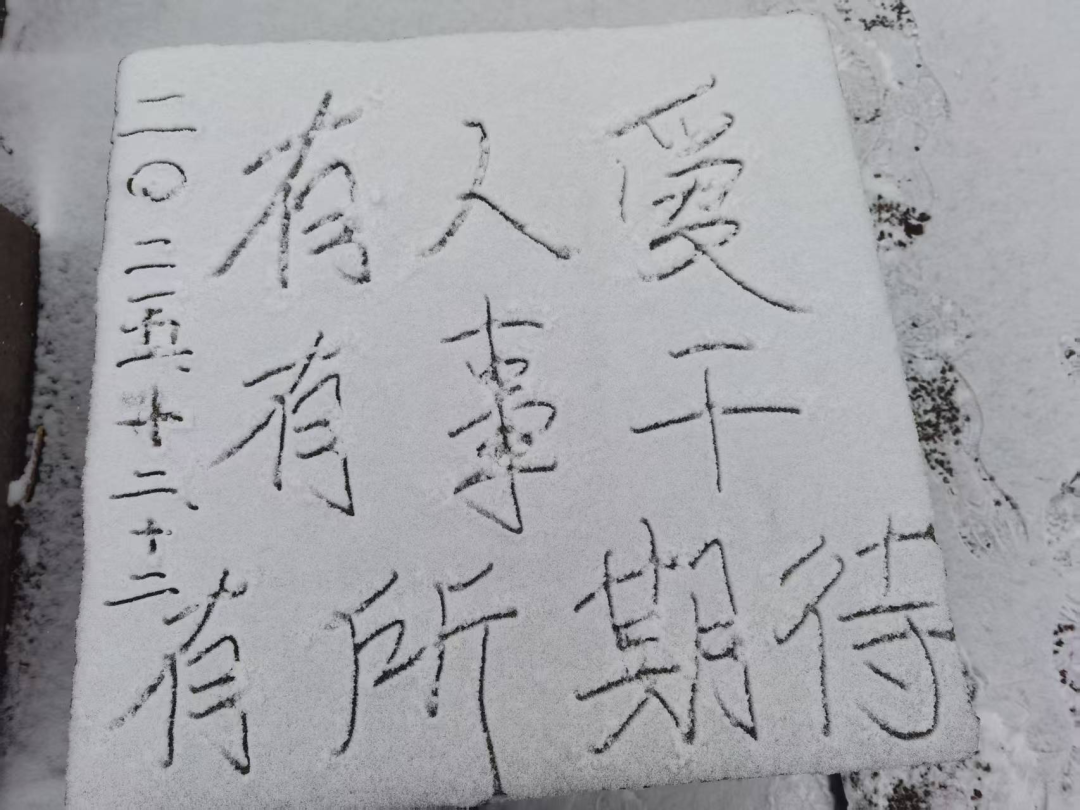 有人愛
有事干
有所期待
二〇二五十二十二